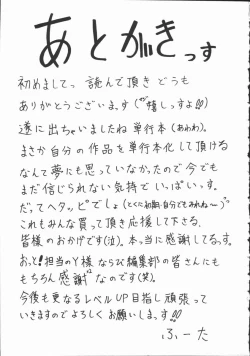 あとがきっす
初めましてっ 読んで頂き どうも
ありがとうございます (ｻﾞ･嬉しっすよ!!)
遂に出ちゃいましたね単行本 (あわわ)。
まさか自分の作品を単行本化して頂ける
なんて夢にも思っていなかったので今でも
まだ信じられない気持でいっぱいっす。
だってヘタッピでしょ (とくに初期、自分でもみれね〜)
これもみんな買って頂き応援して下さる、
皆様のおかげです(泣)。本っ当に感謝してるっす。
おっと!担当のY様ならび編集部の皆さんにも
もちろん感謝なのです(笑)。
今後も更なるレベルUP目指し頑張って
いきますのでよろしくお願いします!!
ふーた